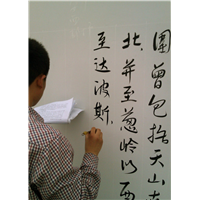 圍曾包括天山南
北，并至葱岭以西
至达波斯，